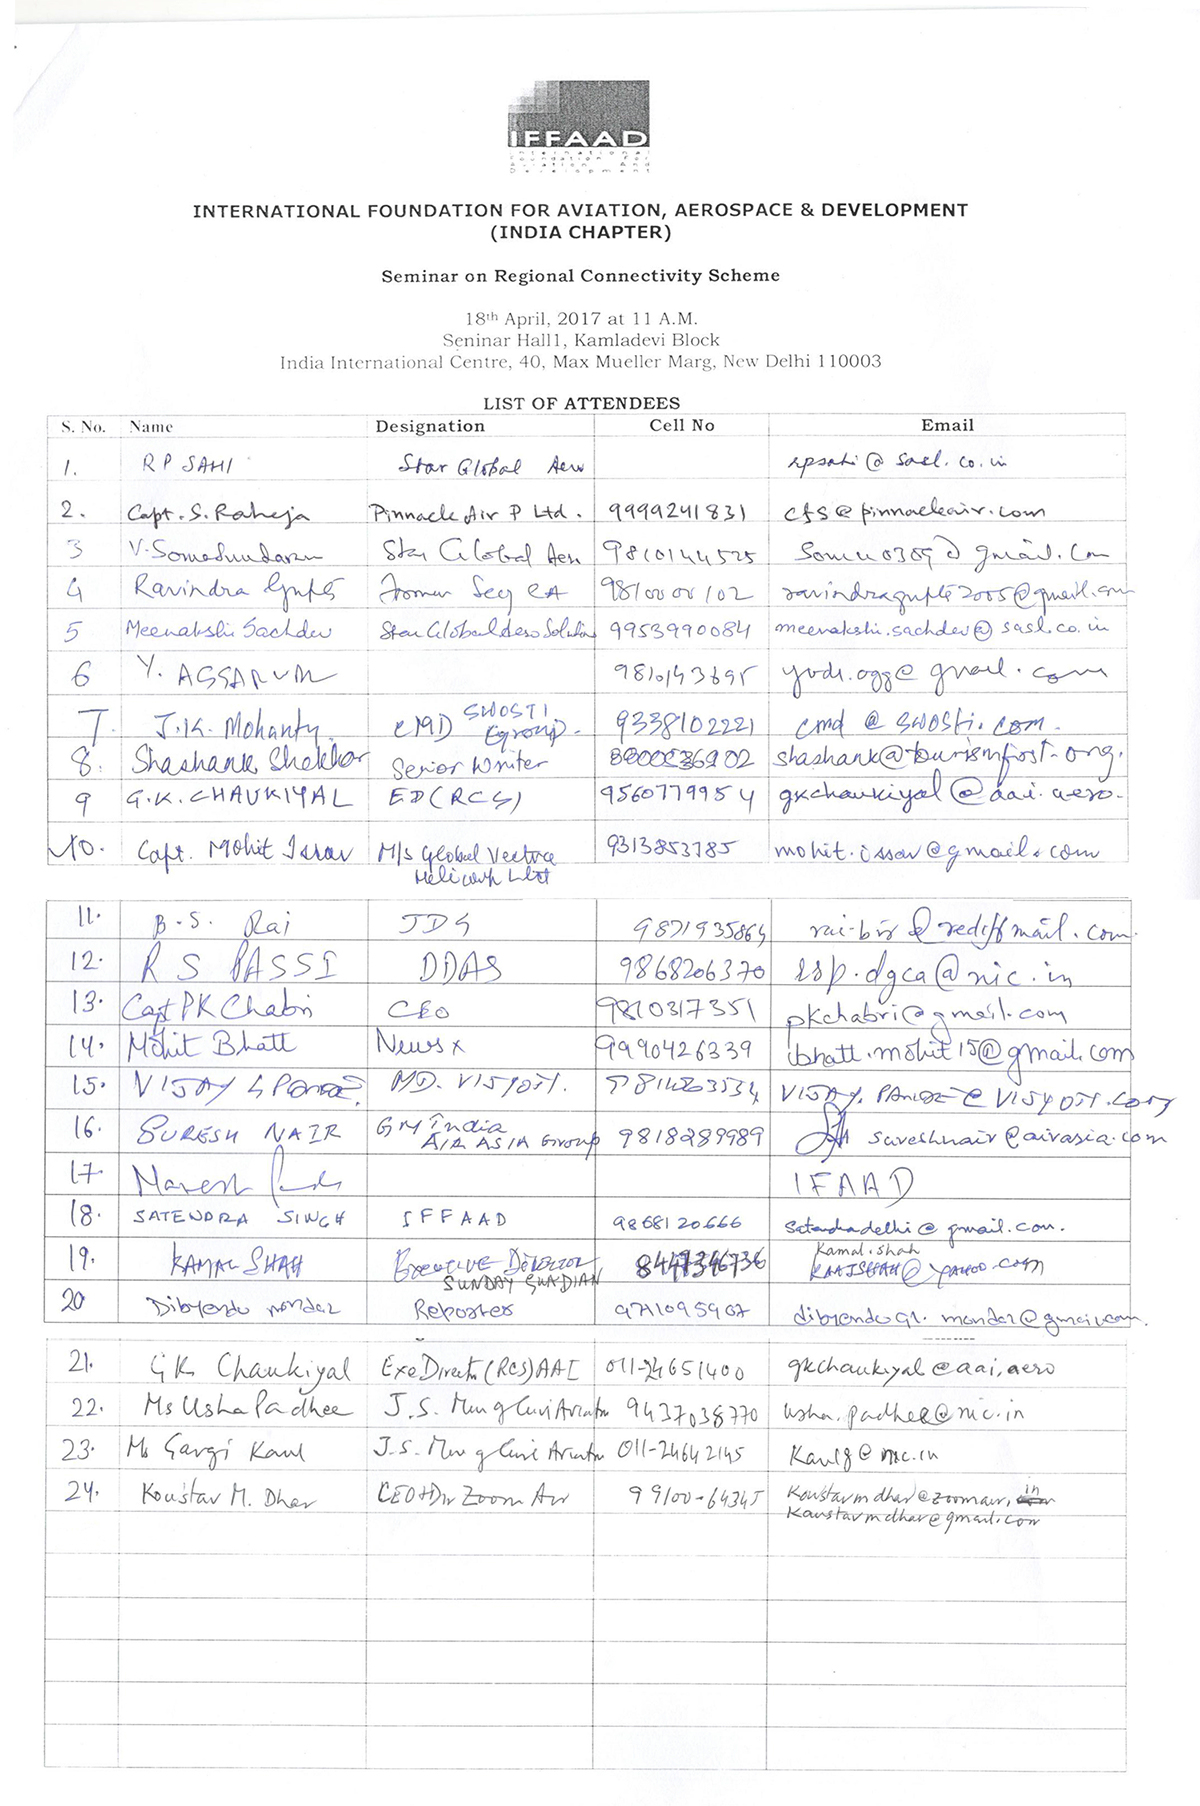 IFFAAD
International
Foundation For
Aviation And
Development
INTERNATIONAL FOUNDATION FOR AVIATION, AEROSPACE & DEVELOPMENT
(INDIA CHAPTER)
Seminar on Regional Connectivity Scheme
18th April, 2017 at 11 A.M.
Seninar Hall1, Kamladevi Block
India International Centre, 40, Max Mueller Marg, New Delhi 110003
LIST OF ATTENDEES
S. No. Name Designation Cell No Email
1. R P SAHI Star Global Aero rpsahi@sasl.co.in
2. Capt. S. Raheja Pinnacle Air P Ltd. 9999241831 cfs@pinnacleair.com
3 V. Somasundaram Star Global Aero 9810144525 somu0309@gmail.com
4 Ravindra Gupta Former Secy 
5 Meenakshi Sachdev Star Global Aero Solution 9953990084 meenakshi.sachdev@sasl.co.in
6 Y. 9810143695
7. J.K. Mohanty CMD SWOSTI Group. 9338102221 cmd@swosti.com.
8. Shashank Shekhar Senior Writer shashank@tourismfast.org.
9 G.K. CHAUKIYAL ED(RCS) 9560779954 gkchaukiyal@aai.aero.
10. Capt. Mohit Issar M/s Global Vectra 9313853785 mohit.issar@gmail.com
Helicorp Ltd
11. B.S. Rai JDG 9871935864 rai-bir@rediffmail.com.
12. R S PASSI DDAS 9868206370 rsp.dgca@nic.in
13. Capt PK Chabri CEO 9810317351 pkchabri@gmail.com
14. Mohit Bhatt News x 9990426339 bhatt.mohit15@gmail.com
15. VIJAY MD. VISYOTI.
16. SURESH NAIR GM India
AIR ASIA Group 9818289989 sureshnair@airasia.com
17. IFAAD
18. SATENDRA SINGH IFFAAD 9868120666 satendradelhi@gmail.com.
19. KAMAL SHAH EXECUTIVE DIRECTOR 8447346736 kamal.shah
SUNDAY GUADIAN KAAJSHAH@YAHOO.COM
20 Dibyendu Mondal Reporter 9711095907 dibyendu91.mondal@gmail.com.
21. GK Chaukiyal Exe Director (RCS) AAI 011-24651400 gkchaukiyal@aai.aero
22. Ms Usha Padhee J.S. Min of Civil Aviation 9437038770 usha.padhee@nic.in
23. Ms Gargi Kaul J.S. Min of Civil Aviation 011-24642145 Kaulg@nic.in
24. Koustav M. Dhar CEO+Dir Zoom Air 99100-64345 Koustavmdhar@zoomair.in
Koustavmdhar@gmail.com